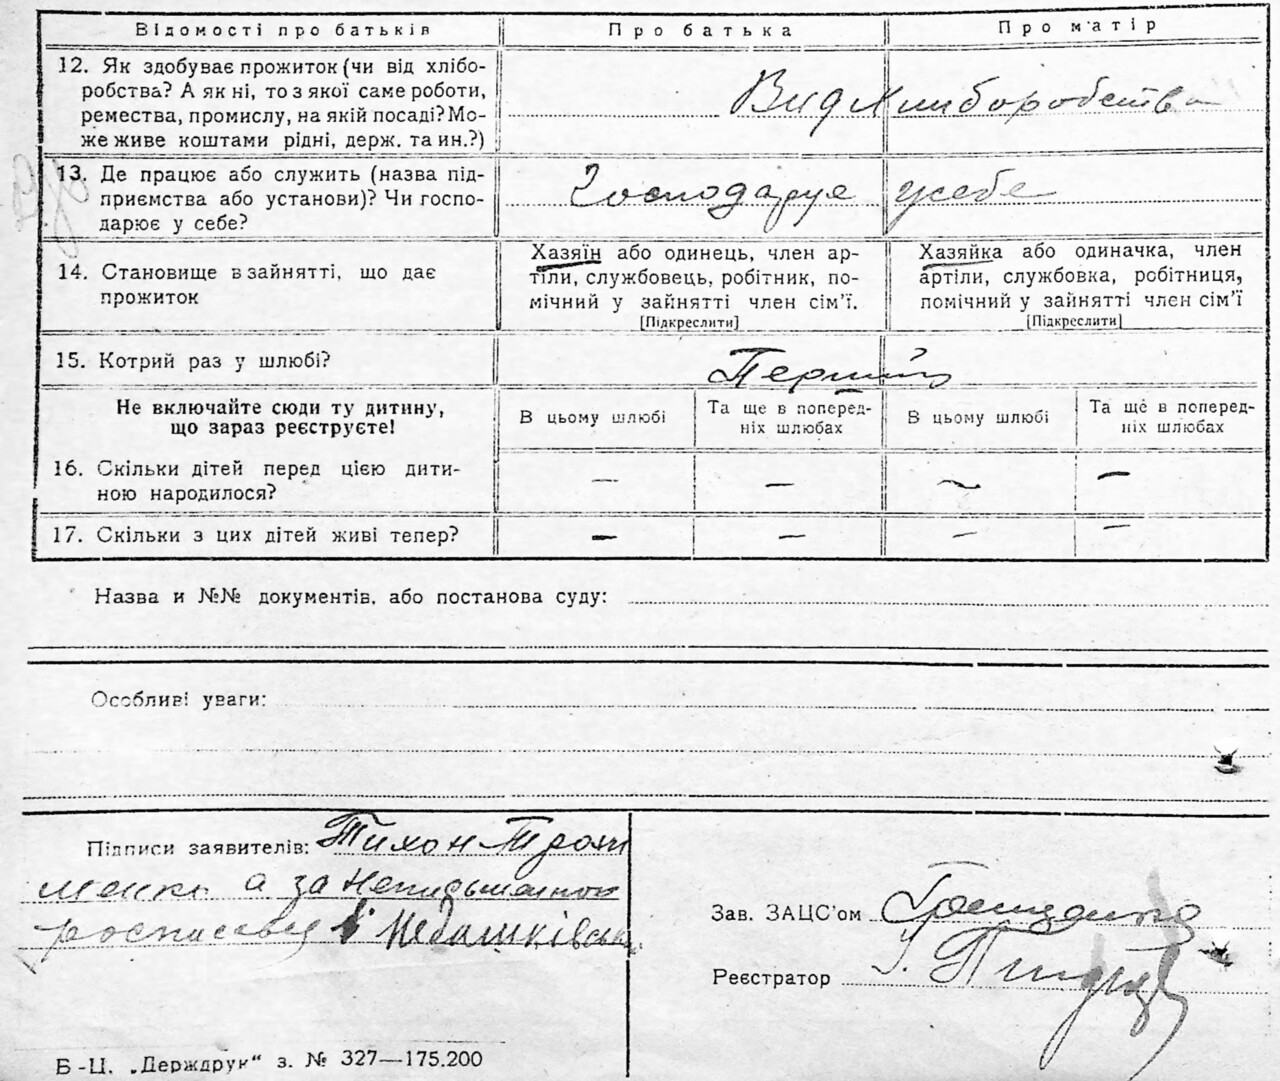 Відомості про батьків
Про батька
Про матір
12. Як здобуває прожиток (чи від хлібо-
робства? А як ні, то з якої саме роботи,
ремества, промислу, на якій посаді? Мо-
же живе коштами рідні, держ. та ин.?)
Вид Хлиборобства
13. Де працює або служить (назва під-
приємства або установи)? Чи госпо-
дарює у себе?
Господарує у себе
14. Становище в зайнятті, що дає
прожиток
Хазяїн або одинець, член ар-
тіли, службовець, робітник, по-
мічний у зайнятті член сім'ї.
[Підкреслити]
Хазяйка або одиначка, член
артіли, службовка, робітниця,
помічний у зайнятті член сім'ї
[Підкреслити]
15. Котрий раз у шлюбі?
Перший
Не включайте сюди ту дитину,
що зараз реєструєте!
В цьому шлюбі
Та ще в поперед-
ніх шлюбах
В цьому шлюбі
Та ще в поперед-
ніх шлюбах
16. Скільки дітей перед цією дити-
ною народилося?
— — — —
17. Скільки з цих дітей живі тепер?
— — — —
Назва и №№ документів, або постанова суду:
Особливі уваги:
Підписи заявителів: Тихон
а за неписьменного
Зав. ЗАЦС'ом
Реєстратор
Б-Ц. „Держдрук" з. № 327—175.200